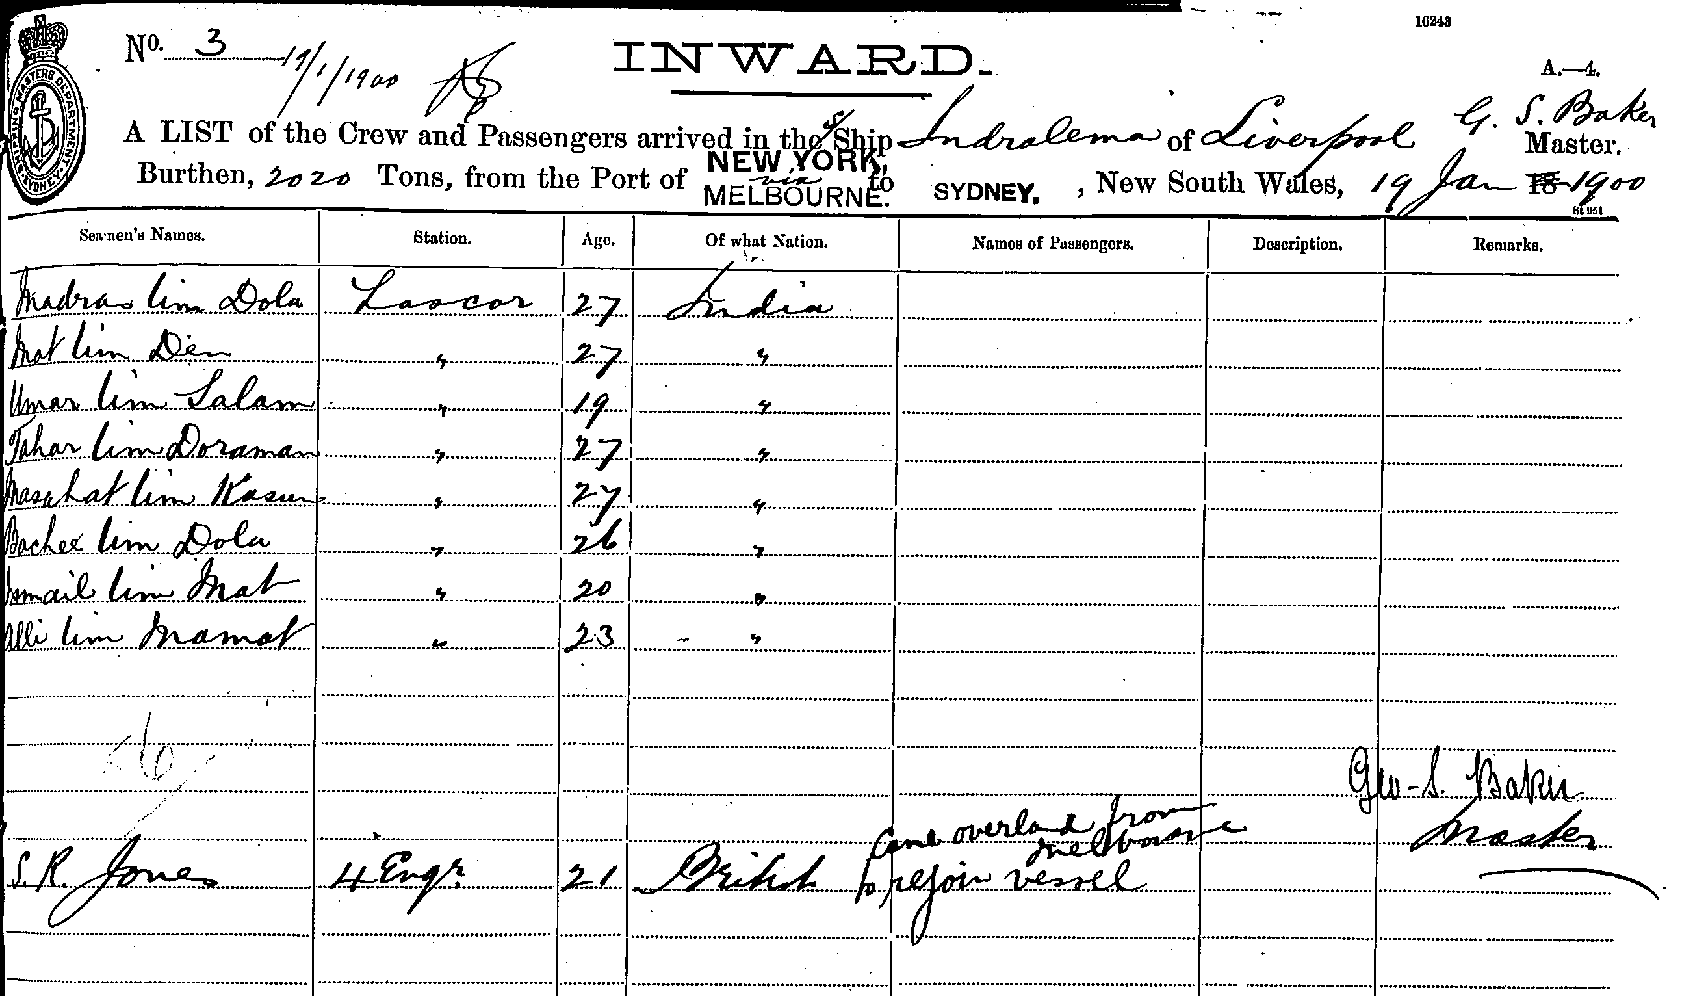 10243
No. 3 19/1/1900
INWARD.
A.—4.
A LIST of the Crew and Passengers arrived in the S/Ship Indralema of Liverpool G. S. Baker Master.
Burthen, 2020 Tons, from the Port of NEW YORK, via MELBOURNE. to SYDNEY. , New South Wales, 19 Jan 18 1900
Seamen's Names. Station. Age. Of what Nation. Names of Passengers. Description. Remarks.
Madras bin Dola Lascar 27 India
Mat bin Den " 27 "
Umar bin Salam " 19 "
Tahar bin Doraman " 27 "
bin Kasim " 27 "
Bachee bin Dola " 26 "
Ismail bin Mat " 20 "
Alli bin Mamat " 23 "
Geo. S. Baker
Master
Came overland from
Melbourne
S. R. Jones 4 Engr. 21 British to rejoin vessel